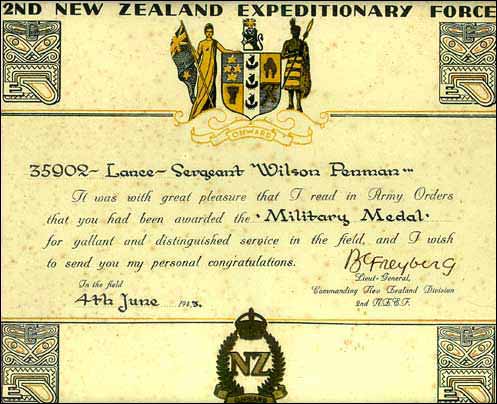 2ND NEW ZEALAND EXPEDITIONARY FORCE
ONWARD
35902 - Lance - Sergeant Wilson Penman
It was with great pleasure that I read in Army Orders
that you had been awarded the · Military Medal ·
for gallant and distinguished service in the field, and I wish
to send you my personal congratulations.
BCFreyberg
Lieut-General,
Commanding New Zealand Division
2nd N.Z.E.F.
In the field
4th June 1943.
NZ
ONWARD